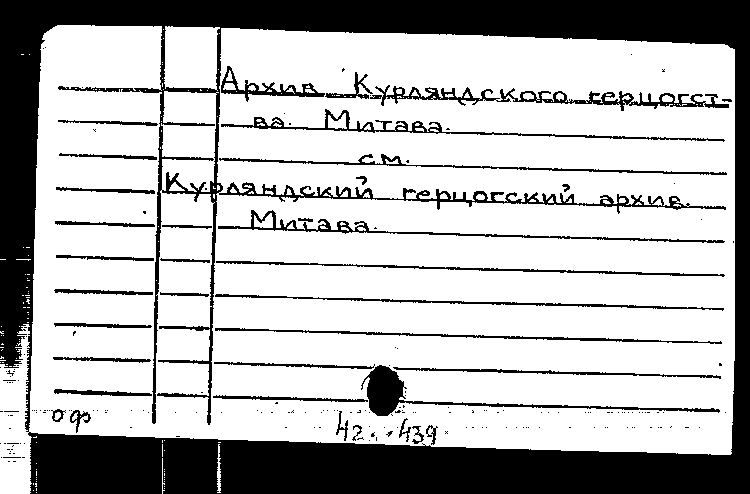 Архив Курляндского герцогст-
ва. Митава.
см.
Курляндский герцогский архив.
Митава.
оф
42..439